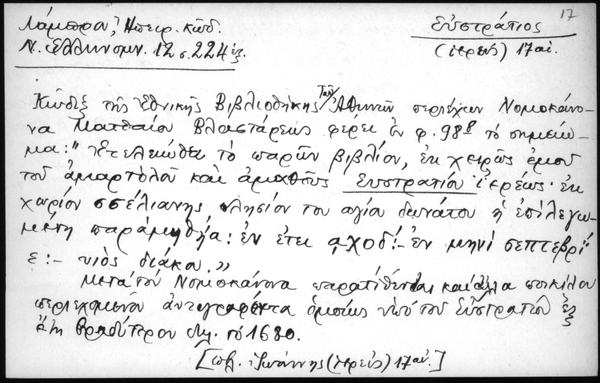 Λάμπρου, Ηπειρ. κώδ.
Ν. Ἑλληνομν. 12 σ. 224 ἑξ.
Εὐστράτιος 17
(ἱερεύς) 17 αἰ.
Κῶδιξ τῆς Ἐθνικῆς Βιβλιοθήκης τῶν Ἀθηνῶν περιέχων Νομοκάνο-
να Ματθαίου Βλαστάρεως φέρει ἐν φ. 98β τὸ σημείω-
μα: "Ἐτελειώθει τὸ παρῶν βιβλίον, ἐκ χειρὸς ἐμοῦ
τοῦ ἁμαρτολοῦ καὶ ἀμαθοῦς Ευστρατίου ἱερέως· ἐκ
χωρίον πλησίον του αγίου δωνάτου ἡ ἐπιλεγω-
μενη παράμηθηα: ἐν ἔτει αχοδ:- ἐν μηνὶ σεπτεβρί
ε:- υιὸς διάκου."
Μετὰ τὸν Νομοκάνονα παρατίθενται καὶ ἄλλα ποικίλου
περιεχομένου ἀντιγραφέντα ὁμοίως ὑπὸ τοῦ Εὐστρατίου
ἔτη βραδύτερον τὸ 1680.
[πβ. Ἰωάννης (ἱερεύς) 17 αἰ.]